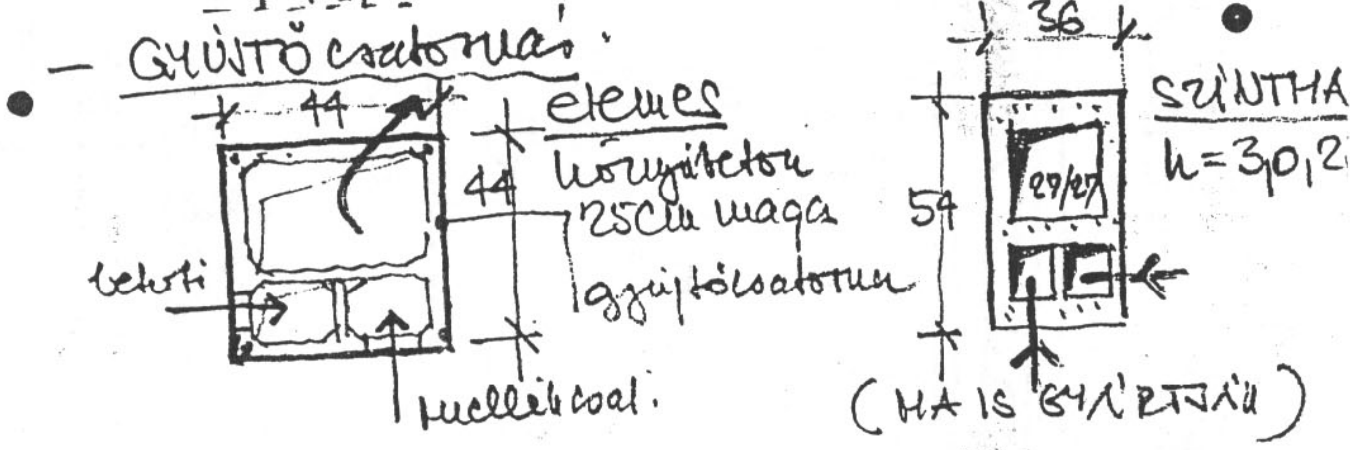 — GYŰJTŐ csatornás.
44
elemes
44
könnyűbeton
25cm maga
gyűjtőcsatorna
bekötő
mellékcsat.
36
54
27/27
SZINTMA
h=3,0,2
(MA IS GYÁRTJÁK)